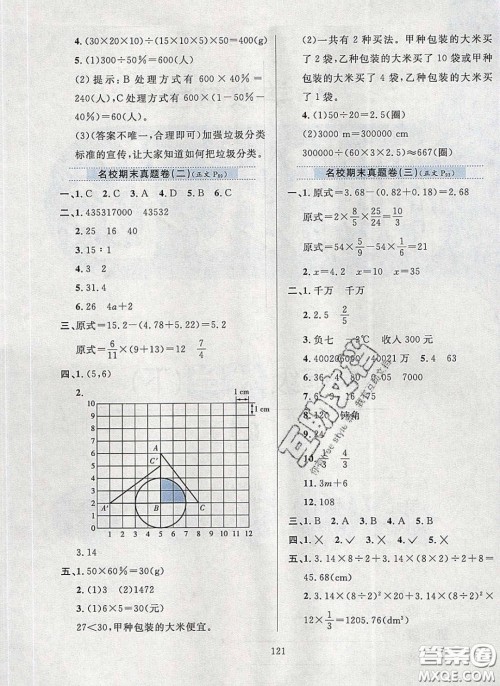 4.(30×20×10)÷(15×10×5)×50=400(g)
5.(1)300÷50%=600(人)
(2)提示:B 处理方式有 600×40%=
240(人),C 处理方式有 600×(1-50%-
40%)=60(人)
(3)(答案不唯一,合理即可)加强垃圾分类
标准的宣传,让大家知道如何把垃圾分类。
名校期末真题卷(二)
一、1.C 2.C 3.A 4.B 5.C
二、1.435317000 43532
2.25 16 40
3.15:1
4.3 2
5.31.4
6.26 4a+2
三、原式=15.2-(4.78+5.22)=5.2
原式=6/11×(9+13)=12 7/4
四、1.(5,6)
2.
1 cm
1 cm
10
9
8
7
6
5
4
3
2
1
0
1 2 3 4 5 6 7 8 9 10 11 12
A
C′
A′
B
C
3.14
五、1.50×60%=30(g)
2.(1)3 (3)1472
3.(1)6×5=30(元)
27<30,甲种包装的大米便宜。
(2)一共有 2 种买法。甲种包装的大米买
了 2 袋,乙种包装的大米买了 10 袋或甲种
包装的大米买了 4 袋,乙种包装的大米买
了 1 袋。
4.(1)50÷20=2.5(圈)
300000÷(60×3×2.5)≈667(圈)
名校期末真题卷(三)
一、1.原式=3.68-(0.82+0.18)=2.68
原式=2×8/5×25/24=10/3
原式=54×8/9-54×1/6=39
2.x=4.2 x=10 x=35
二、1.千万 千万
2.2.5 2/5
3.负七 收入 300 元
5.4 63
7000
8.120 钝角
4/3
11.3m+6
12.108
三、1.B 2.A 3.B 4.A 5.A
四、1.✓ 2.✕ 3.✕ 4.✓ 5.✕
五、1.3.14×(8×2)÷2+8×2.5=
45.68(cm)
2.3.14×(8÷2)²×20+3.14×(8÷2)²×
12×1/3=1205.76(dm³)
121
答案圈
MXQE.COM